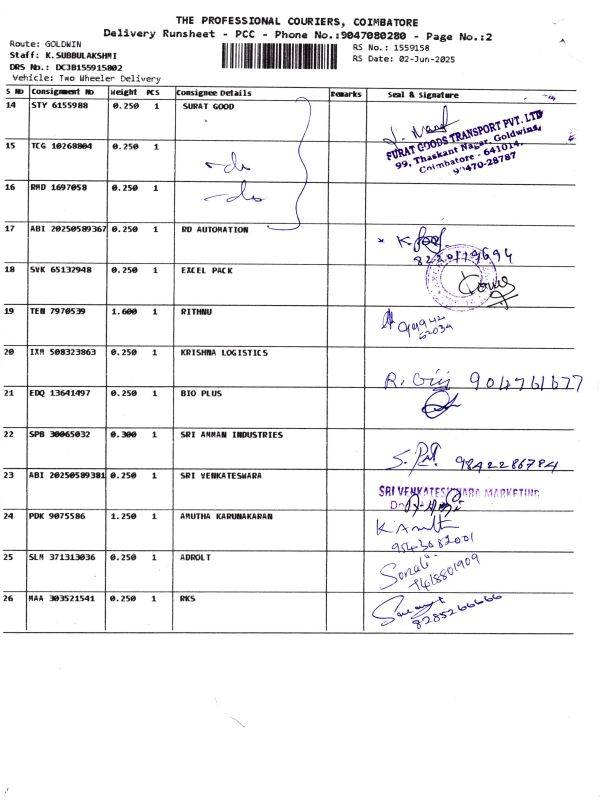 THE PROFESSIONAL COURIERS, COIMBATORE
Delivery Runsheet - PCC - Phone No.:9047080280 - Page No.:2
Route: GOLDWIN
RS No.: 1559158
Staff: K.SUBBULAKSHMI
RS Date: 02-Jun-2025
DRS No.: DCJB155915802
Vehicle: Two Wheeler Delivery
S No Consignment No Weight PCS Consignee Details Remarks Seal & Signature
14 STY 6155988 0.250 1 SURAT GOOD
SURAT GOODS TRANSPORT PVT. LTD
99, Thaskant Nagar, Goldwins,
Coimbatore - 641014.
90470-28787
15 TCG 10268804 0.250 1 -do
16 RMD 1697058 0.250 1 -do
17 ABI 20250589367 0.250 1 RD AUTOMATION
8220179694
18 SVK 65132948 0.250 1 EXCEL PACK
19 TEN 7970539 1.600 1 RITHNU
99942
62034
20 IXM 508323863 0.250 1 KRISHNA LOGISTICS
R. Giri 904761677
21 EDQ 13641497 0.250 1 BIO PLUS
22 SPB 30065032 0.300 1 SRI AMMAN INDUSTRIES
9842286784
23 ABI 20250589381 0.250 1 SRI VENKATESWARA
SRI VENKATESWARA MARKETING
24 PDK 9075586 1.250 1 AMUTHA KARUNAKARAN
9543082001
25 SLM 371313036 0.250 1 ADROLT
Sonali
7418801909
26 MAA 303521541 0.250 1 RKS
8285266666